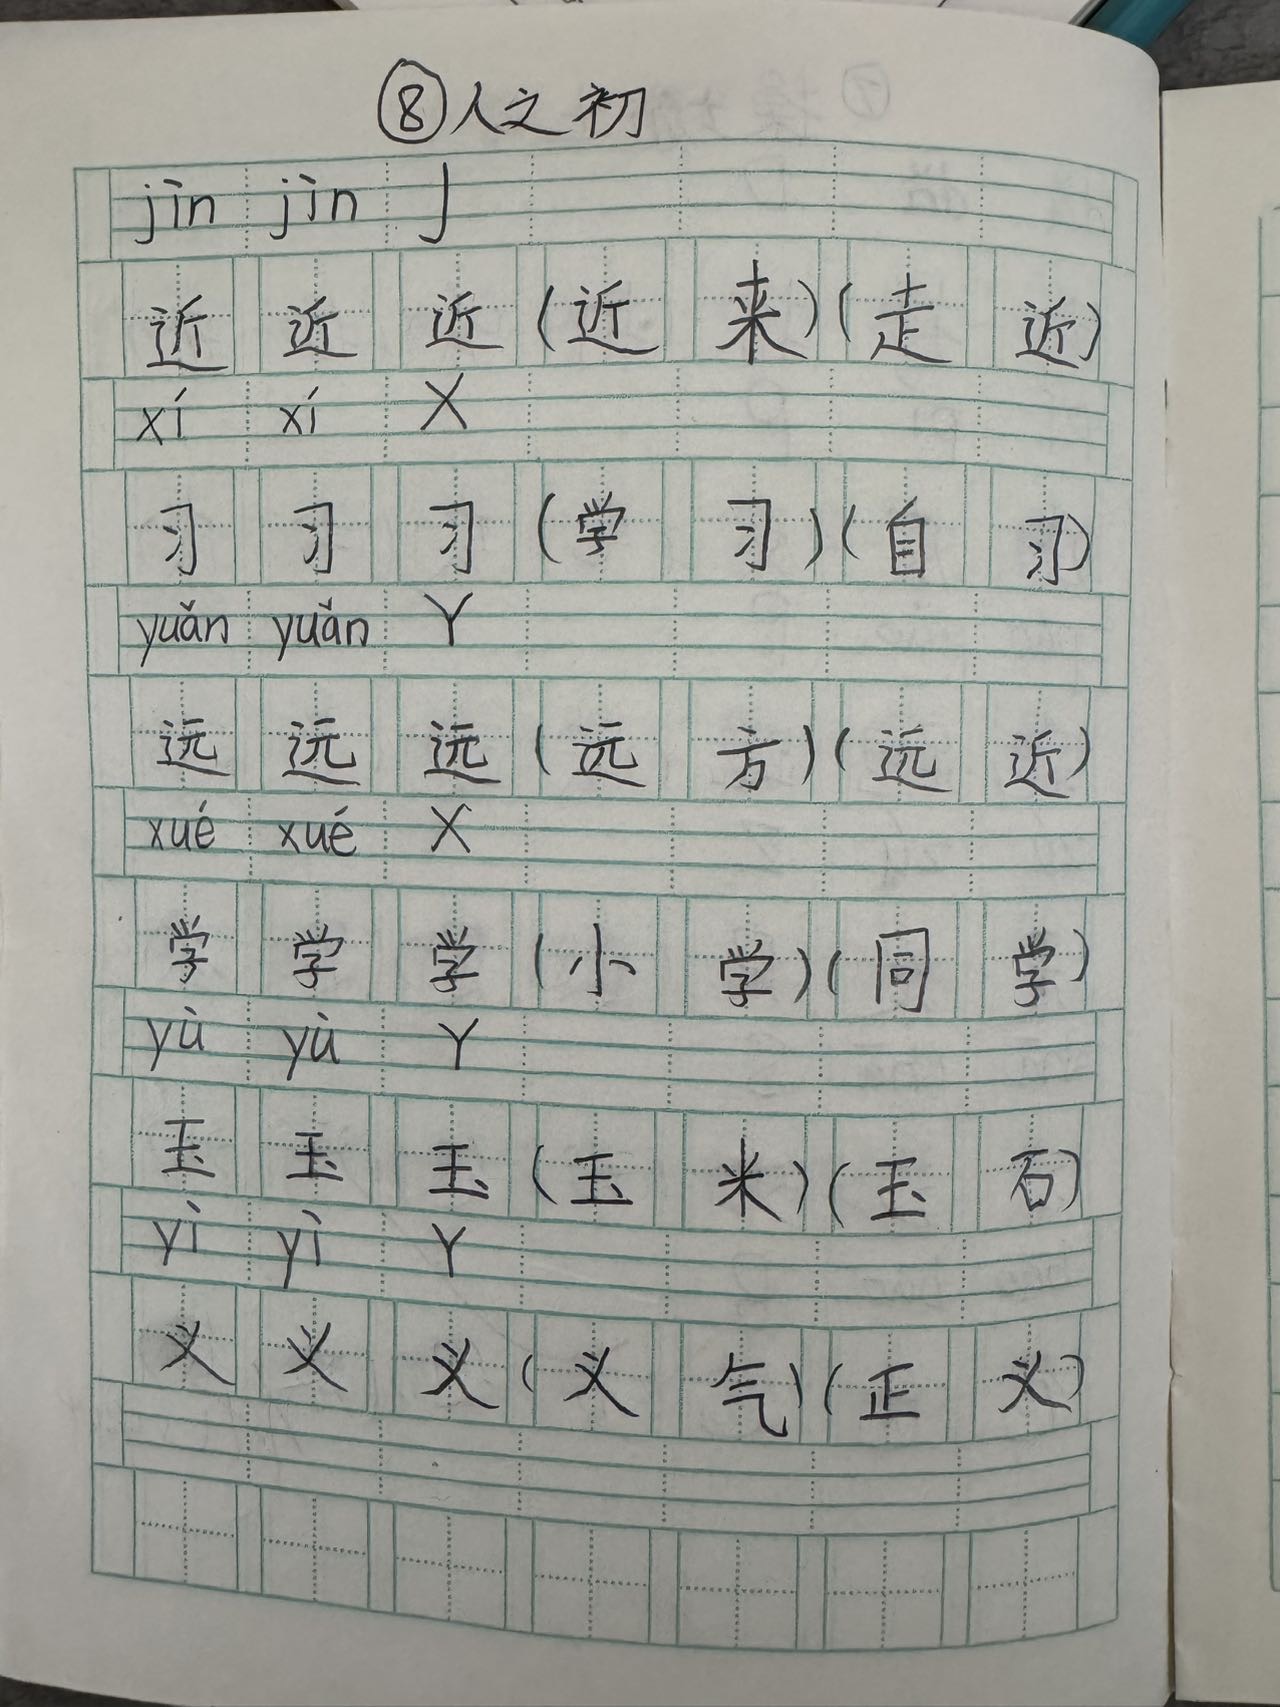 ⑧人之初
jìn jìn J
近 近 近 (近 来)(走 近)
xí xí X
习 习 习 (学 习)(自 习)
yuǎn yuǎn Y
远 远 远 (远 方)(远 近)
xué xué X
学 学 学 (小 学)(同 学)
yù yù Y
玉 玉 玉 (玉 米)(玉 石)
yì yì Y
义 义 义 (义 气)(正 义)